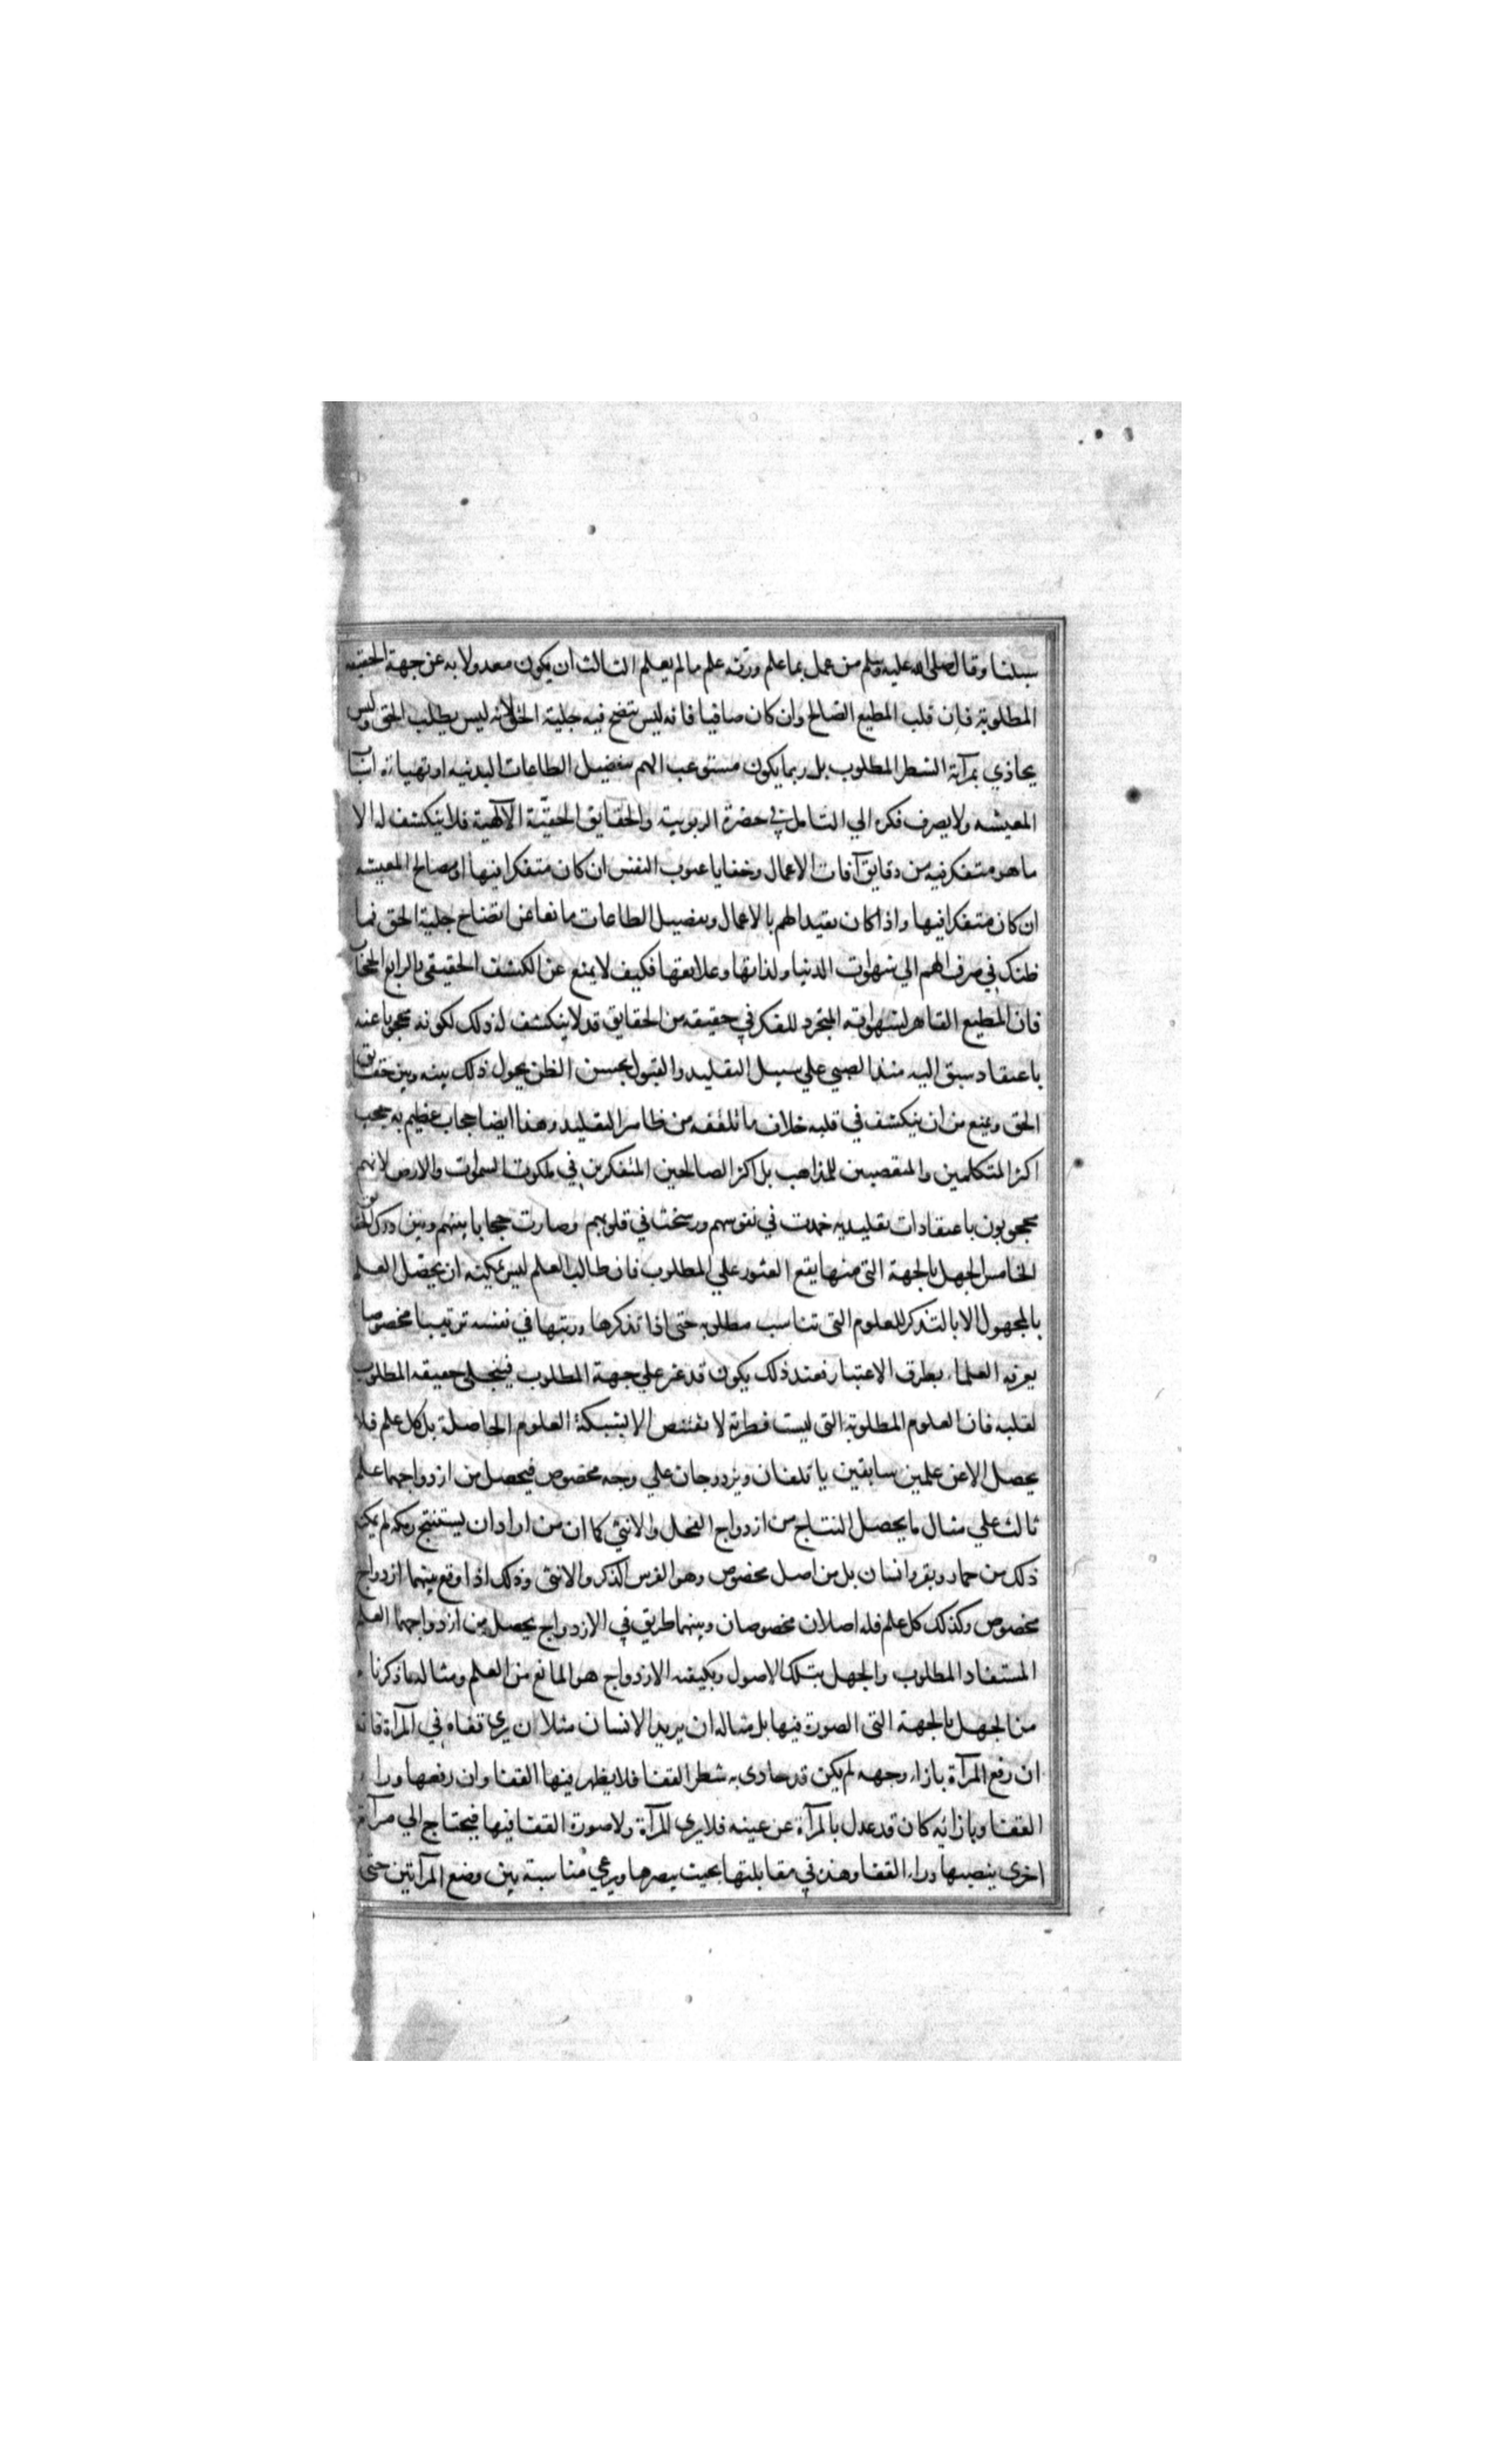 سبلنا وقال صلى الله عليه وسلم من عمل بما علم ورثه علم ما لم يعلم الثالث ان يكون معدولا به عن جهة الحقيقه
المطلوبة فان قلب المطيع الصالح وان كان صافيا فانه ليس يتضح فيه جلية الحق لانه ليس يطلب الحق وليس
يحاذي بمرآته الشطر المطلوب بل ربما يكون مستوعب الهم بتفضيل الطاعات البدنيه او تهيأة اسباب
المعيشه ولا يصرف فكره الي التامل في حضرة الربوبية والحقايق الحقيّة الآلهية فلا ينكشف له الا
ما هو متفكر فيه من دقايق آفات الاعمال وخفايا عيوب النفس ان كان متفكرا فيها او مصالح المعيشه
ان كان متفكرا فيها واذا كان تقييد الهم بالاعمال وتفضيل الطاعات مانعا عن اتضاح جلية الحق فما
ظنك في صرف الهم الي شهوات الدنيا ولذاتها وعلايقها فكيف لا يمنع عن الكشف الحقيقي الرابع الحجاب
فان المطيع القاهر لشهواته المتجرد للفكر في حقيقه من الحقايق قد لا ينكشف له ذلك لكونه محجوبا عنه
باعتقاد سبق اليه منذ الصبي علي سبيل التقليد والقبول بحسن الظن يحول ذلك بينه وبين حقايق
الحق ويمنع من ان ينكشف في قلبه خلاف ما تلقفه من ظاهر التقليد وهذا ايضا حجاب عظيم به حجب
اكثر المتكلمين والمتعصبين للمذاهب بل اكثر الصالحين المتفكرين في ملكوت السموات والارض لانهم
محجوبون باعتقادات تقليديه خمدت في نفوسهم ورسخت في قلوبهم وصارت حجابا بينهم وبين درك الحقايق
الخامس الجهل بالجهة التي منها يقع العثور علي المطلوب فان طالب العلم ليس يمكنه ان يحصّل العلم
بالمجهول الا بالتذكر للعلوم التي تناسب مطلوبه حتى اذا تذكرها ورتبها في نفسه ترتيبا مخصوصا
يعرفه العلماء بطرق الاعتبار فعند ذلك يكون قد عثر علي جهة المطلوب فينجلي حقيقه المطلوب
لقلبه فان العلوم المطلوبة التي ليست فطرية لا تقتنص الا بشبكة العلوم الحاصلة بل كل علم فلا
يحصل الا عن علمين سابقين ياتلفان ويزدوجان علي وجه مخصوص فيحصل من ازدواجهما علم
ثالث علي مثال ما يحصل النتاج من ازدواج الفحل والانثي كما ان من اراد ان يستنتج رمكه لم يمكنه
ذلك من حمار وبقر وانسان بل من اصل مخصوص وهو الفرس الذكر والانثى وذلك اذا وقع بينهما ازدواج
مخصوص وكذلك كل علم فله اصلان مخصوصان وبينهما طريق في الازدواج يحصل من ازدواجهما العلم
المستفاد المطلوب والجهل بتلك الاصول وبكيفيه الازدواج هو المانع من العلم ومثاله ما ذكرناه
من الجهل بالجهة التي الصورة فيها بل مثاله ان يريد الانسان مثلا ان يري قفاه في المرآة فانه
ان رفع المرآة بازاء وجهه لم يكن قد حاذى به شطر القفا فلا يظهر فيها القفا وان رفعها وراء
القفا وبازائه كان قد عدل بالمرآة عن عينه فلا يري المرآة ولا صورة القفا فيها فيحتاج الي مرآة
اخري ينصبها وراء القفا وهذه في مقابلتها بحيث يبصرها ويرعي مناسبة بين وضع المرآتين حتى